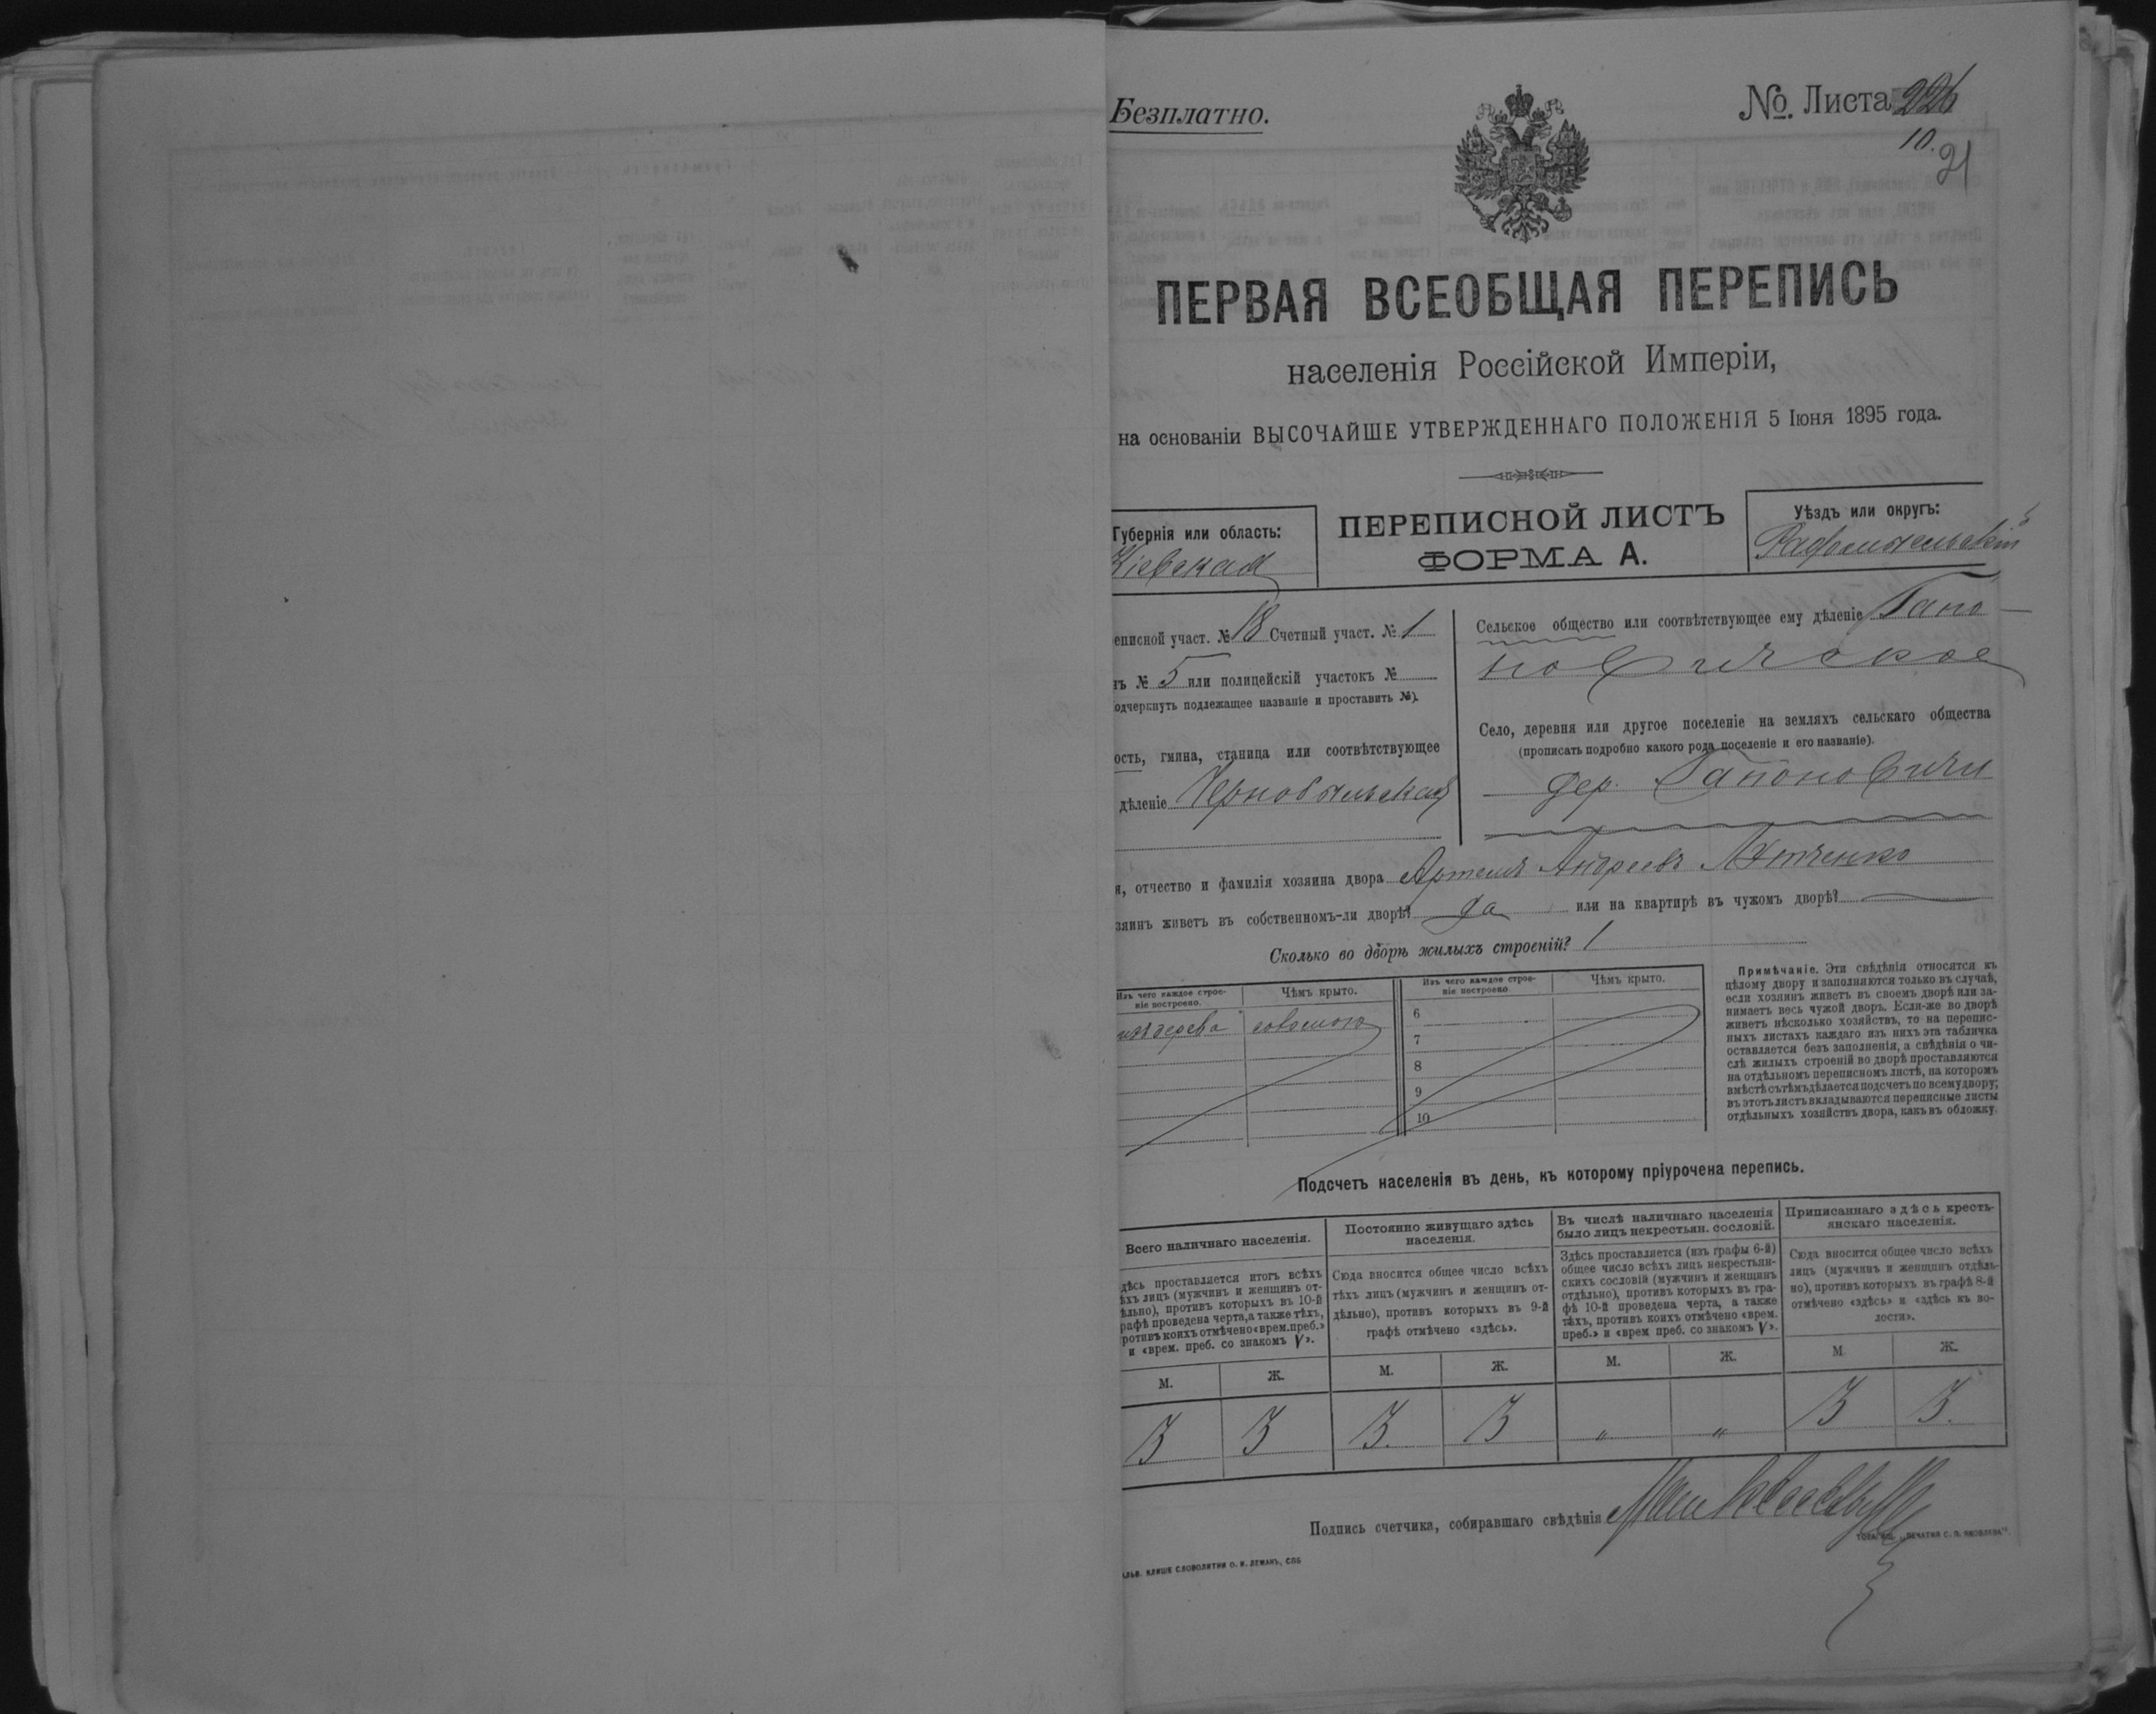 Безплатно.
№. Листа 226
10.
21
ПЕРВАЯ ВСЕОБЩАЯ ПЕРЕПИСЬ
населенія Россійской Имперіи,
на основаніи ВЫСОЧАЙШЕ УТВЕРЖДЕННАГО ПОЛОЖЕНІЯ 5 Іюня 1895 года.
Губернія или область:
Кіевская
ПЕРЕПИСНОЙ ЛИСТЪ
ФОРМА А.
Уѣздъ или округъ:
Радомысльскій
еписной участ. № 18 Счетный участ. № 1
нъ № 5 или полицейскій участокъ №
одчеркнуть подлежащее названіе и проставить №).
ость, гмина, станица или соотвѣтствующее
дѣленіе Чернобыльская
Сельское общество или соотвѣтствующее ему дѣленіе Гапо-
новичское
Село, деревня или другое поселеніе на земляхъ сельскаго общества
(прописать подробно какого рода поселеніе и его названіе).
дер. Гапоновичи
я, отчество и фамилія хозяина двора Артемъ Андреевъ
зяинъ живетъ въ собственномъ-ли дворѣ? да или на квартирѣ въ чужомъ дворѣ?
Сколько во дворѣ жилыхъ строеній? 1
Изъ чего каждое строе-
ніе построено.
Чѣмъ крыто.
Изъ чего каждое строе-
ніе построено
Чѣмъ крыто.
изъ дерева соломою
6
7
8
9
10
Примѣчаніе. Эти свѣдѣнія относятся къ
цѣлому двору и заполняются только въ случаѣ,
если хозяинъ живетъ въ своемъ дворѣ или за-
нимаетъ весь чужой дворъ. Если-же во дворѣ
живетъ нѣсколько хозяйствъ, то на перепис-
ныхъ листахъ каждаго изъ нихъ эта табличка
оставляется безъ заполненія, а свѣдѣнія о чи-
слѣ жилыхъ строеній во дворѣ проставляются
на отдѣльномъ переписномъ листѣ, на которомъ
вмѣстѣ съ тѣмъ дѣлается подсчетъ по всему двору;
въ этотъ листъ вкладываются переписные листы
отдѣльныхъ хозяйствъ двора, какъ въ обложку.
Подсчетъ населенія въ день, къ которому пріурочена перепись.
Всего наличнаго населенія.
дѣсь проставляется итогъ всѣхъ
ѣхъ лицъ (мужчинъ и женщинъ от-
ѣльно), противъ которыхъ въ 10-й
рафѣ проведена черта, а также тѣхъ,
ротивъ коихъ отмѣчено «врем. преб.»
и «врем. преб. со знакомъ V».
Постоянно живущаго здѣсь
населенія.
Сюда вносится общее число всѣхъ
тѣхъ лицъ (мужчинъ и женщинъ от-
дѣльно), противъ которыхъ въ 9-й
графѣ отмѣчено «здѣсь».
Въ числѣ наличнаго населенія
было лицъ некрестьян. сословій.
Здѣсь проставляется (изъ графы 6-й)
общее число всѣхъ лицъ некрестьян-
скихъ сословій (мужчинъ и женщинъ
отдѣльно), противъ которыхъ въ гра-
фѣ 10-й проведена черта, а также
тѣхъ, противъ коихъ отмѣчено «врем.
преб.» и «врем преб. со знакомъ V».
Приписаннаго здѣсь кресть-
янскаго населенія.
Сюда вносится общее число всѣхъ
лицъ (мужчинъ и женщинъ отдѣль-
но), противъ которыхъ въ графѣ 8-й
отмѣчено «здѣсь» и «здѣсь къ во-
лости».
М. Ж. М. Ж. М. Ж. М Ж.
3 3 3. 3 " " 3 3.
Подпись счетчика, собиравшаго свѣдѣнія
АЛЬВ. КЛИШЕ СЛОВОЛИТНИ О. И. ЛЕМАНЪ, СПБ
ПЕЧАТНЯ С. П. ЯКОВЛЕВА".